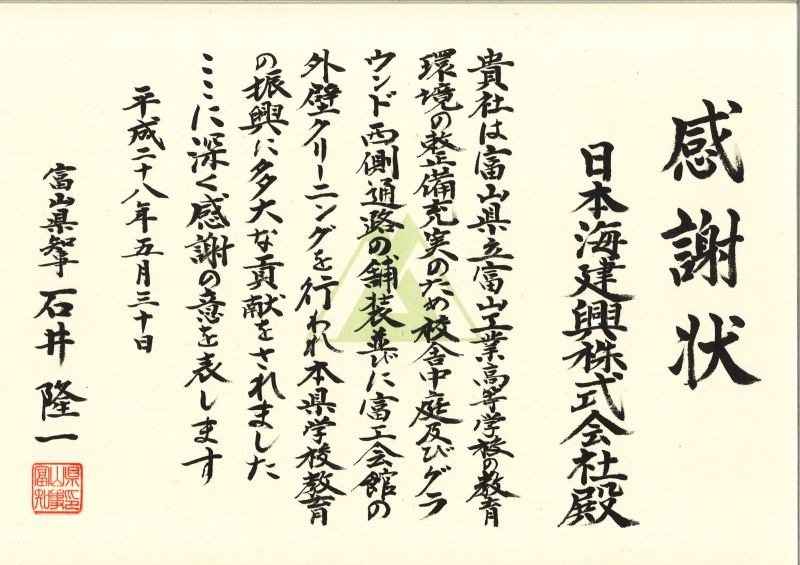 感謝状
日本海建興株式会社殿
貴社は富山県立富山工業高等学校の教育
環境の整備充実のため校舎中庭及びグラ
ウンド西側通路の舗装並びに富工会館の
外壁クリーニングを行われ本県学校教育
の振興に多大な貢献をされました
ここに深く感謝の意を表します
平成二十八年五月三十日
富山県知事 石井隆一